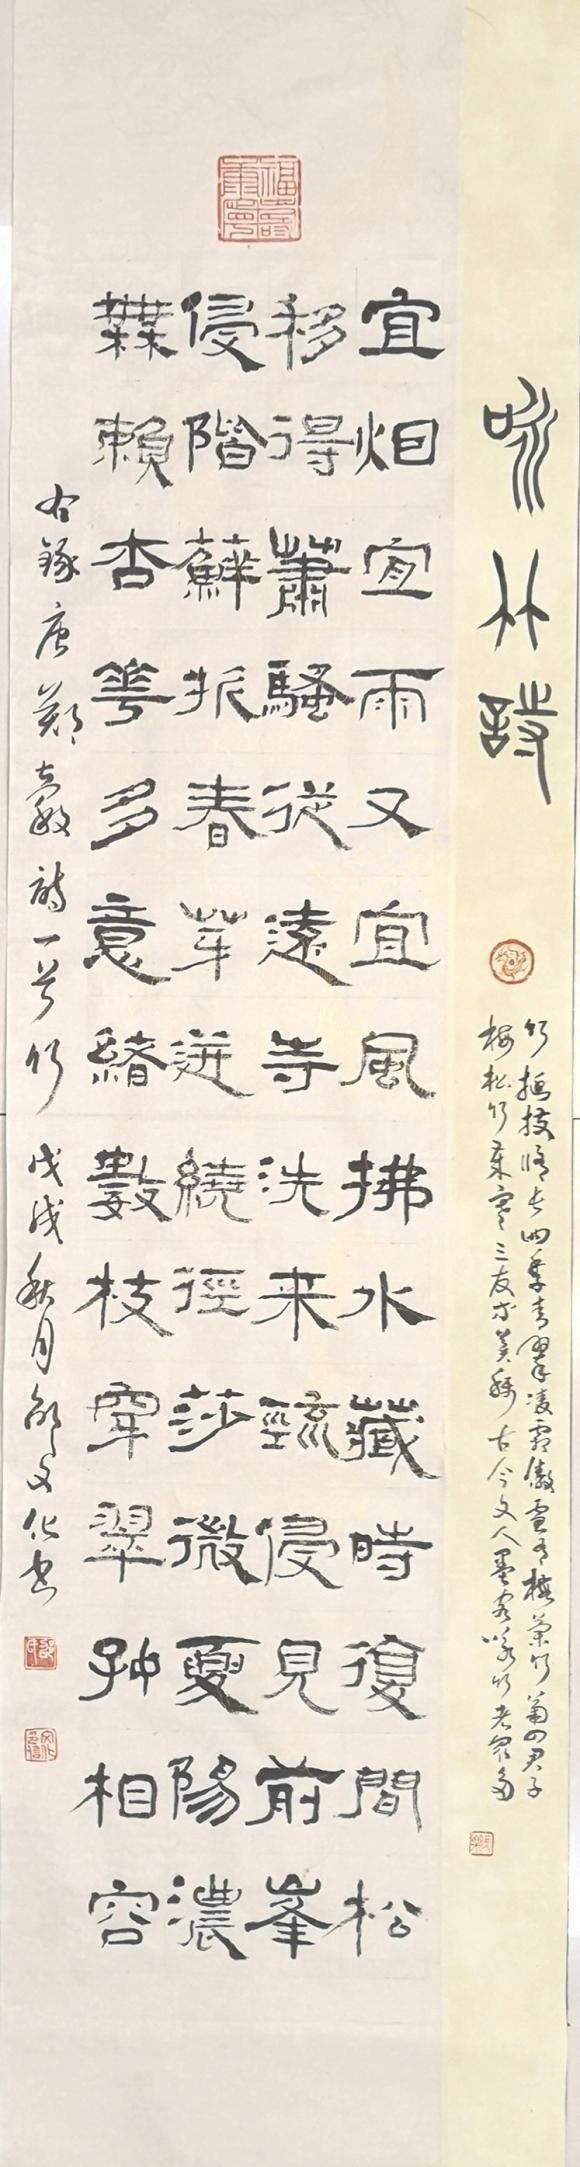 咏竹诗
竹挺拔修长四季青翠凌霜傲雪有梅兰竹菊四君子
梅松竹岁寒三友之美称古今文人墨客咏竹者众多
宜烟宜雨又宜風拂水藏時復間松
移得蕭騷從遠寺洗来疏侵見前峯
侵階蘚拆春芽迸繞徑莎微夏陽濃
無賴杏花多意緒數枝穿翠好相容
右錄唐鄭谷詩一首竹 戊戌秋月邵文化書
福壽康寧